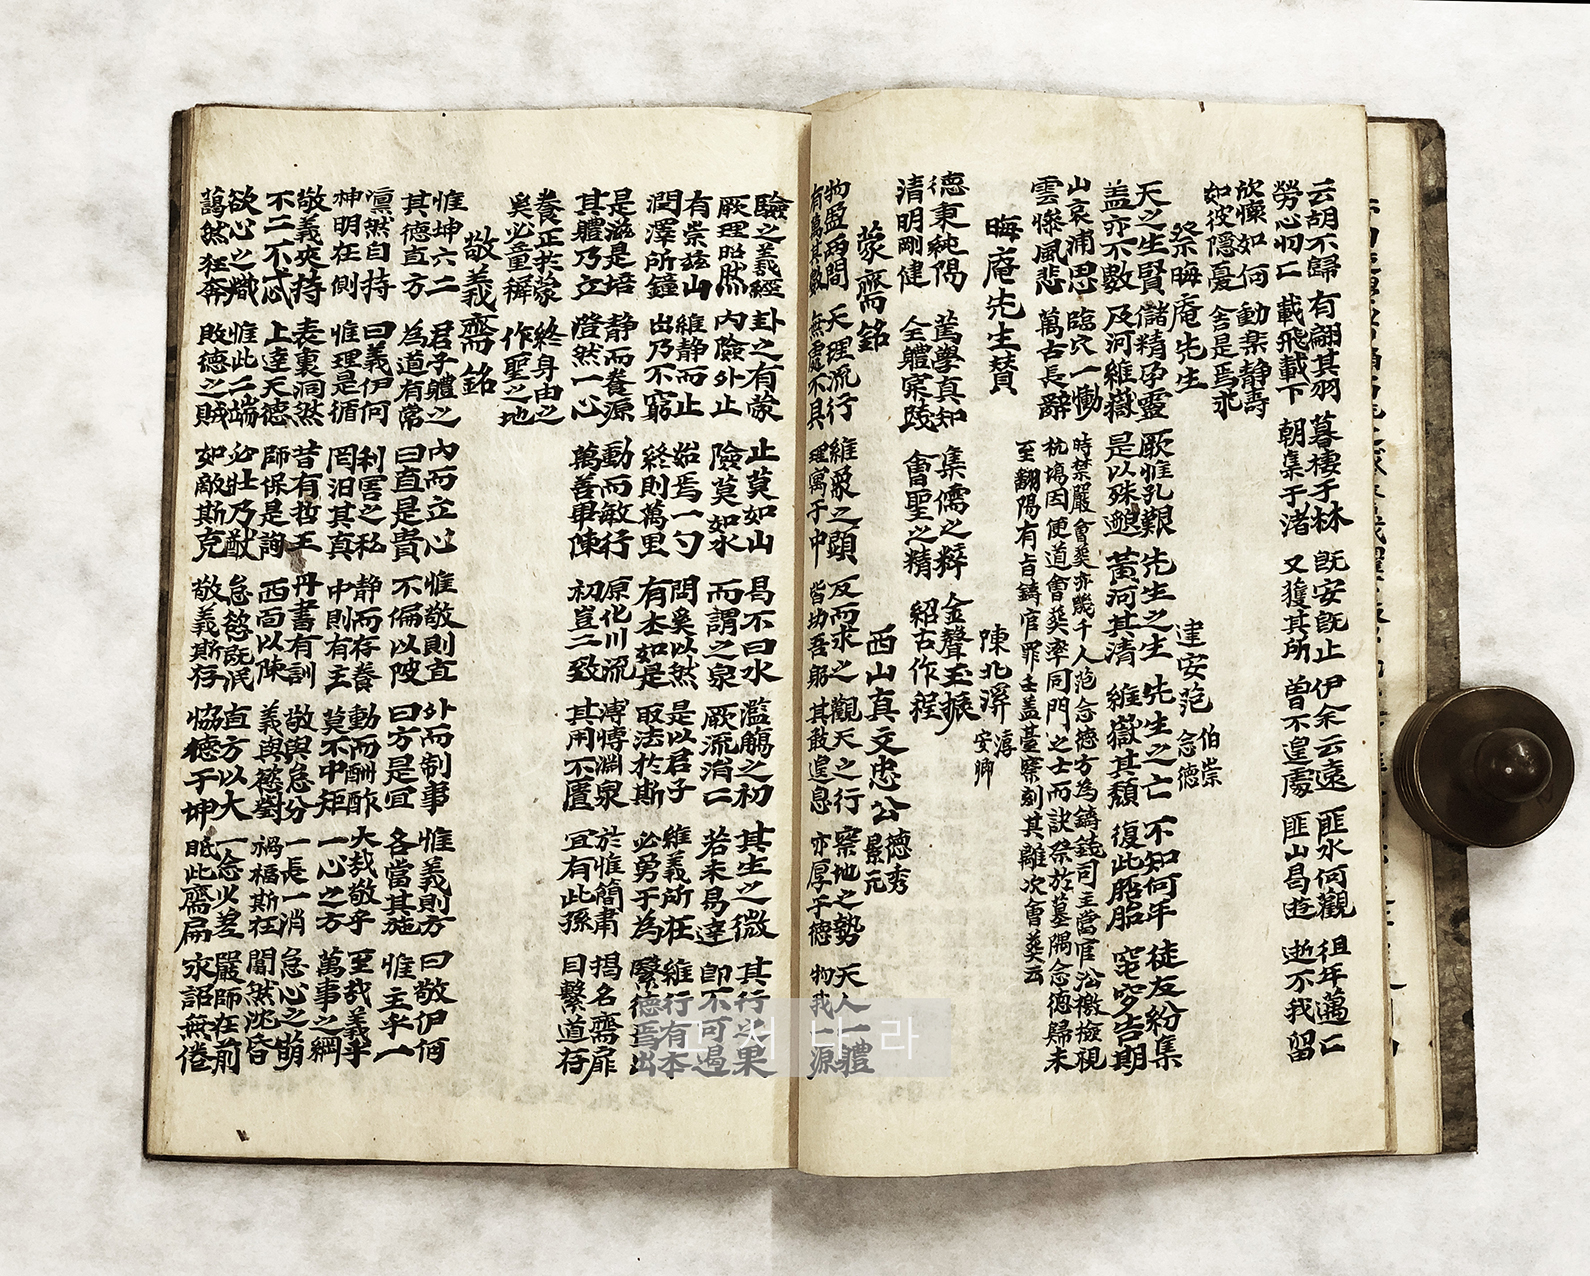 云胡不歸 有翩其羽 暮棲于林 旣安旣止 伊余云遠 匪水何觀 徂年邁々
勞心忉々 載飛載下 朝集于渚 又獲其所 曽不遑處 匪山曷遊 逝不我留
欣懷如何 動樂静壽
如彼隱憂 舍是焉求
祭晦庵先生 建安范 伯崇 念德
天之生賢 儲精孕靈 厥惟孔艱 先生之生 先生之亡 不知何年 徒友紛集
盖亦不數 及河維嶽 是以殊邈 黃河其清 維嶽其頹 復此胚胎 窀穸告期
山哀浦思 臨穴一慟 時禁嚴會葬亦幾千人范念德方為鑄錢司主當官沿檄撿視
雲慘風悲 萬古長辭 杭塢因便道會葬率同門之士而訣祭於墓隅念德歸未
至翻陽有旨鑄官罪去盖臺察刻其離次會葬云
晦庵先生賛 陳北溪 淳 安卿
德秉純陽 篤學真知 集儒之粹 金聲玉振
清明剛健 全體實踐 會聖之精 紹古作程
蒙齋銘 西山真文忠公 德秀 景元
物盈两間 天理流行 維爻之顕 反而求之 觀天之行 察地之勢 天人一體
有萬其數 無處不具 理寓于中 皆切吾躬 其敢遑息 亦厚乎德 物我一源
驗之羲經 卦之有蒙 止莫如山 昜不曰水 濫觴之初 其生之微 其行之果
厥理昭然 内險外止 險莫如水 而謂之泉 厥流涓々 若未易達 卽不可遏
有崇玆山 維静而止 始焉一勺 問奚以然 是以君子 維義所在 維行有本
潤澤所鐘 出乃不窮 終則萬里 有本如是 取法扵斯 必勇于為 繄德焉出
是滋是培 静而養源 動而敏行 原化川流 溥博淵泉 於惟簡肅 揭名齋扉
其體乃立 澄然一心 萬善畢陳 初豈二致 其用不匱 宜有此孫 目擊道存
養正扵蒙 終身由之
奚必童穉 作聖之地
敬義齋銘
惟坤六二 君子體之 内而立心 惟敬則直 外而制事 惟義則方 曰敬伊何
其德直方 為道有常 曰直是貴 不偏以陂 曰方是宜 各當其施 惟主乎一
凛然自持 曰義伊何 利害之私 静而存養 動而酬酢 大哉敬乎 至哉義乎
神明在側 惟理是循 罔汨其真 中則有主 莫不中矩 一心之方 萬事之綱
敬義夾持 表裏洞然 昔有哲王 丹書有訓 敬與怠分 一長一消 怠心之萌
不二不忒 上達天德 師保是詢 西面以陳 義與慾對 禍福斯在 闇然沈昏
欲心之熾 惟此二端 必壮乃猷 怠慾旣泯 直方以大 一念必差 嚴師在前
蕩然狂奔 敗德之賊 如敵斯克 敬義斯存 協德于坤 眂此齋扁 永詔無倦
고서나라